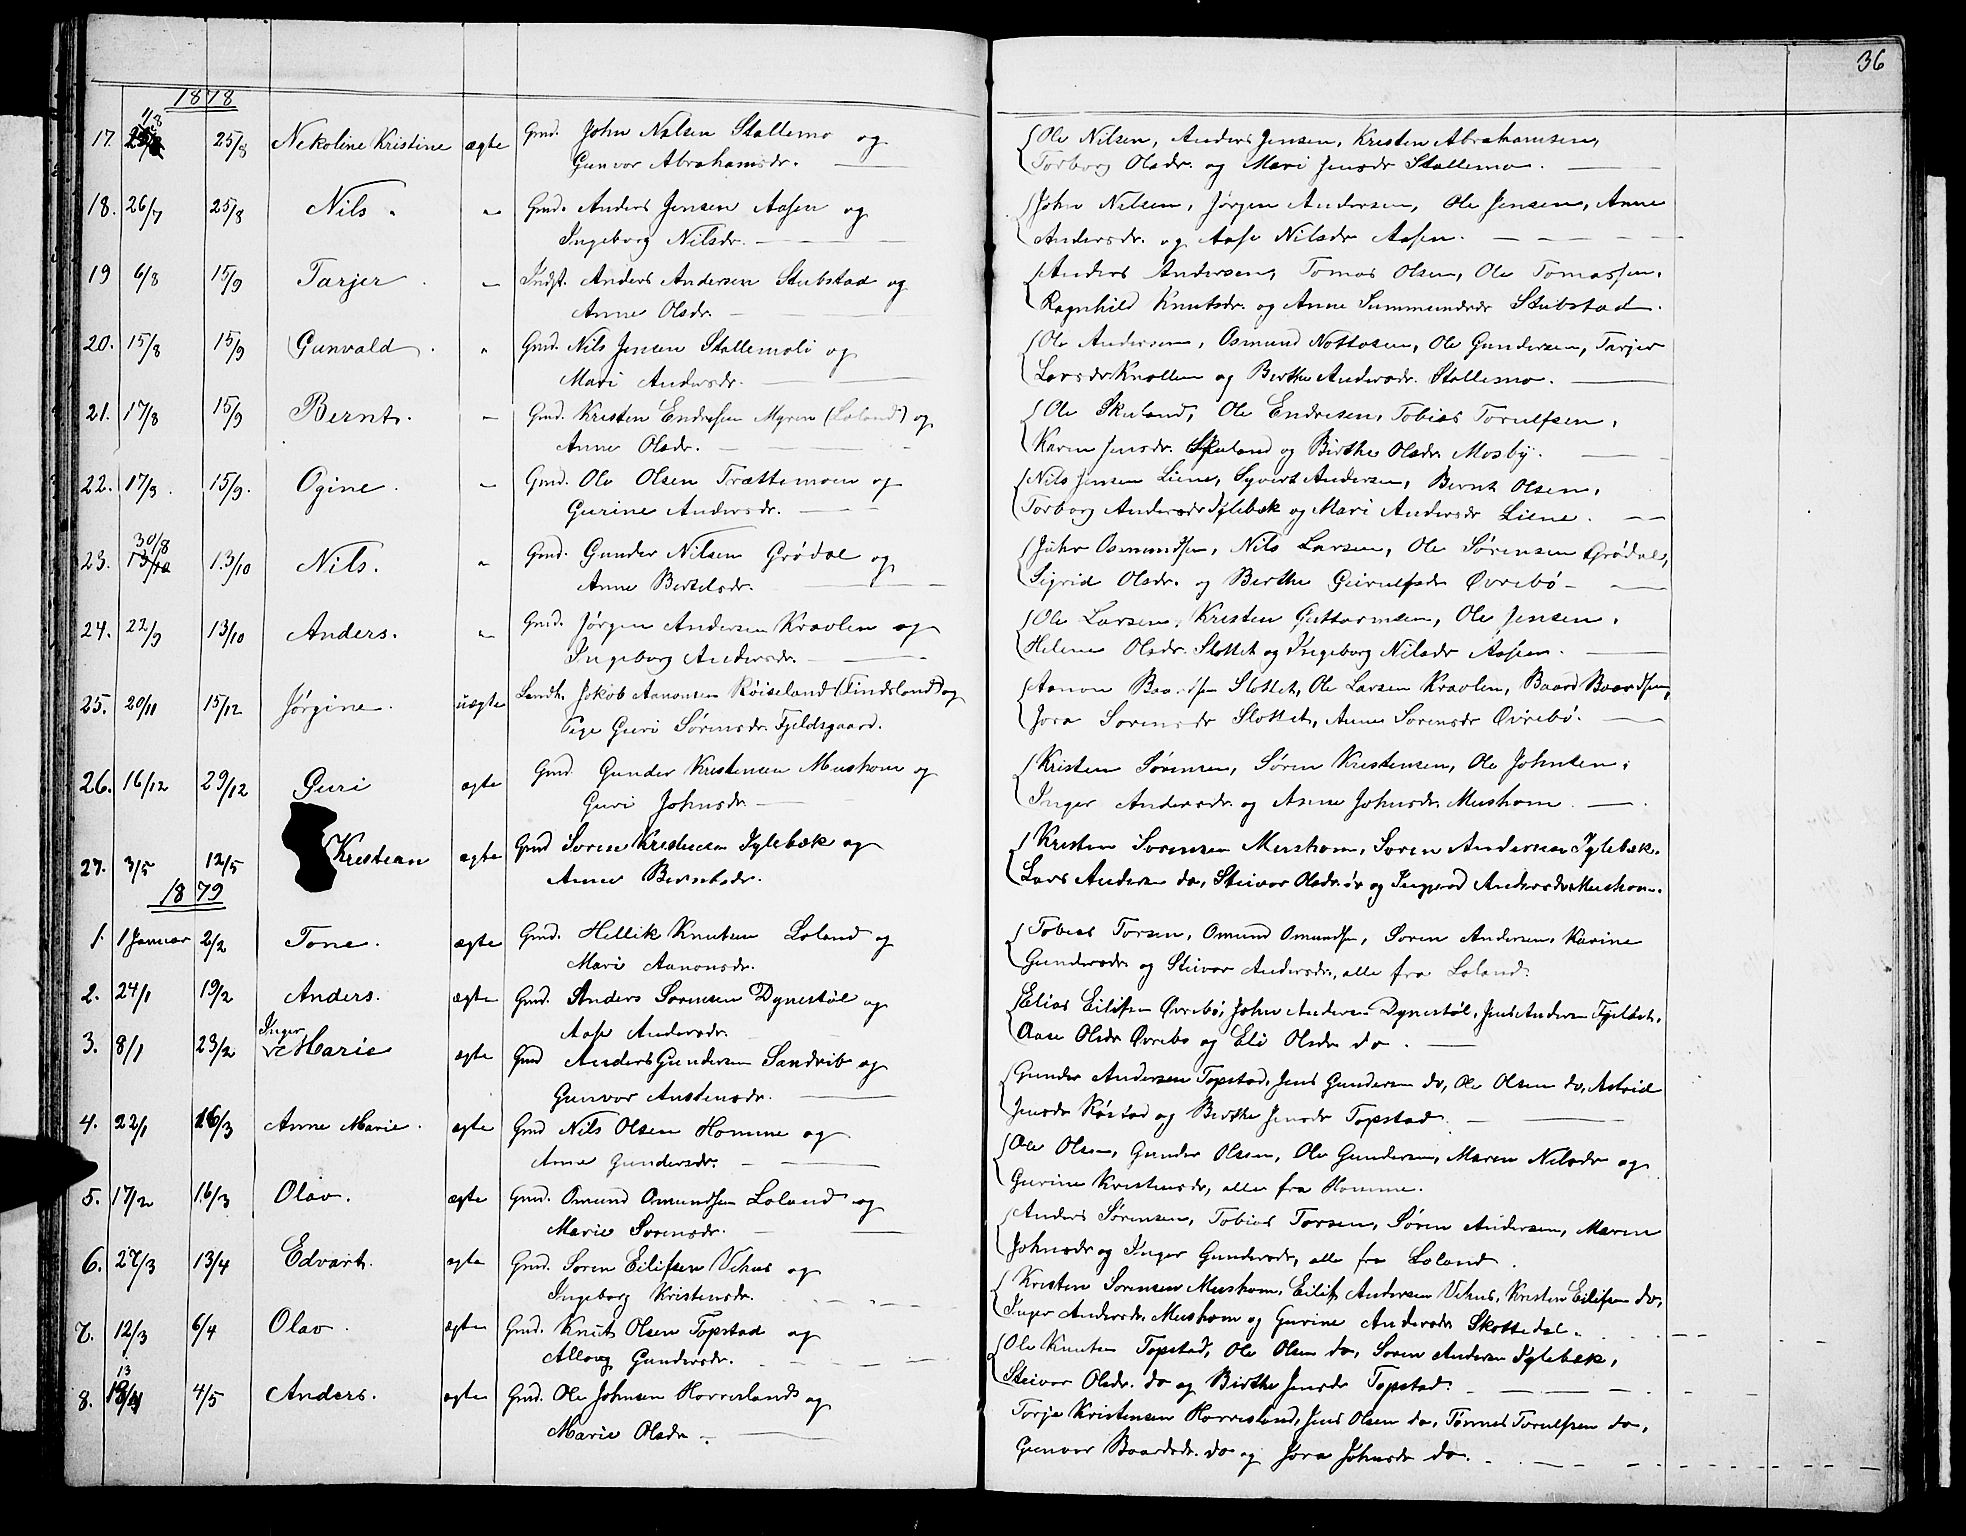 36
1878
17. 1/8 25/8 Nekoline Kristine ægte Gmd. John Nilsen Stallemo og
Gunvor Abrahamsdr.
Ole Nilsen, Anders Jensen, Kristen Abrahamsen,
Torborg Olsdr. og Mari Jensdr Stallemo.
18. 26/7 25/8 Nils. " Gmd. Anders Jensen Aasen og
Ingeborg Nilsdr.
John Nilsen, Jørgen Andersen, Ole Jensen, Anne
Andersdr. og Aase Nilsdr Aasen.
19 6/8 15/9 Tarjer " Indst. Anders Andersen Stubstad og
Anne Olsdr.
Anders Andersen, Tomas Olsen, Ole Tomassen,
Ragnhild Knutsdr. og Anne Summundsdr Stubstad.
20. 15/8 15/9 Gunvald. " Gmd. Nils Jensen Stallemoli og
Mari Andersdr.
Ole Andersen, Osmund Nottosen, Ole Gundersen, Tarjer
Larsdr Knollen og Berthe Andersdr. Stallemo.
21. 17/8 15/9 Bernt. " Gmd. Kristen Endresen Myren (Loland) og
Anne Olsdr.
Ole Skuland, Ole Endresen, Tobias Torulfsen,
Karen Jensdr. Skuland og Birthe Olsdr. Mosby.
22. 17/8. 15/9. Ogine. " Gmd. Ole Olsen Trættemoen og
Gurine Andersdr.
Nils Jensen Liene, Syvert Andersen, Bernt Olsen,
Torborg Andersdr Iglebæk og Mari Andersdr Liene.
23. 30/8 13/10 13/10 Nils. " Gmd. Gunder Nilsen Grødal og
Anne Bertelsdr.
John Osmundsen, Nils Larsen, Ole Sørensen Grødal,
Sigrid Olsdr. og Berthe Geirulfsdr Øvrebø
24. 22/9 13/10 Anders. " Gmd. Jørgen Andersen Kraolen og
Ingeborg Andersdr.
Ole Larsen, Kristen Guttormsen, Ole Jensen,
Helene Olsdr. Slottet og Ingeborg Nilsdr Aasen.
25. 20/11 15/12 Jørgine. uægte Landh. Jakob Aanonsen Røiseland (Tindsland) og
Pige Guri Sørensdr. Fjeldsgaard.
Aanon Baardsen Slottet, Ole Larsen Kraolen, Baard Baardsen,
Jora Sørensdr Slottet, Anne Sørensdr Øvrebø.
26. 16/12 29/12 Guri ægte Gmd. Gunder Kristensen Mushom og
Guri Johnsdr
Kristen Sørensen, Søren Kristensen, Ole Johnsen,
Inger Andersdr. og Anne Johnsdr. Mushom.
27. 3/5 12/5 Kristian ægte Gmd Søren Kristensen Iglebæk og
Anne Berntsdr.
Kristen Sørensen Mushom, Søren Andersen Iglebæk,
Lars Andersen do, Steivor Olsdr. do og Ingerod Andersdr Mushom.
1879
1. 1 Januar 2/2 Tone. ægte Gmd. Hellik Knutsen Loland og
Mari Aanonsdr.
Tobias Torsen, Omund Omundsen, Søren Andersen, Karine
Gundersdr. og Steivor Andersdr., alle fra Loland.
2. 24/1 19/2 Anders. ægte Gmd. Anders Sørensen Dynestøl og
Aase Andersdr.
Elias Eilifsen Øvrebø, John Andersen Dynestøl, Jens Andersen
Aase Olsdr Øvrebø og Eli Olsdr do.
3. 8/1 23/2 Inger Marie ægte Gmd Anders Gundersen Sandrib og
Gunvor Anstensdr.
Gunder Andersen Topstad, Jens Gundersen do, Ole Olsen do, Astrid
Jensdr Røstad og Birthe Jensdr Topstad.
4. 22/1 16/3 Anne Marie. ægte Gmd Nils Olsen Homme og
Anne Gundersdr.
Ole Olsen, Gunder Olsen, Ole Gundersen, Maren Nilsdr og
Gurine Kristensdr, alle fra Homme.
5. 17/2 16/3 Olav. ægte Gmd. Omund Omundsen Loland og
Marie Sørensdr.
Anders Sørensen, Tobias Torsen, Søren Andersen, Maren
Johnsdr og Inger Gundersdr, alle fra Loland.
6. 27/3 13/4 Edvart. ægte Gmd. Søren Eilifsen Vehus og
Ingeborg Kristensdr.
Kristen Sørensen Mushom, Eilif Andersen Vehus, Kristen Eilifsen do,
Inger Andersdr. Mushom og Gurine Andersdr Skottedal.
7. 12/3 6/4 Olav. ægte Gmd. Knut Olsen Topstad og
Alloug Gundersdr.
Ole Knutsen Topstad, Ole Olsen do, Søren Andersen Iglebæk,
Steivor Olsdr. do og Birthe Jensdr Topstad.
8. 13 4/5 Anders. ægte Gmd. Ole Johnsen Horrisland og
Marie Olsdr
Torje Kristensen Horrisland, Jens Olsen do, Tønnes Torulfsen do,
Gunvor Baardsdr. do og Jora Johnsdr do.